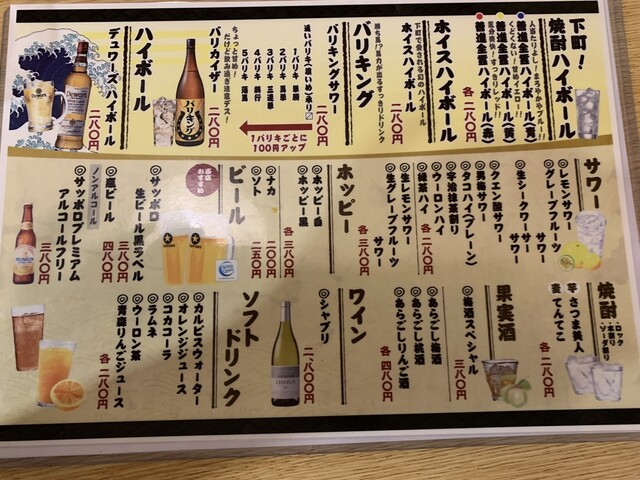 下町！
焼酎ハイボール
人当たりよし！まろやかやブルー!!
酎ハイボール(青)
くどくない！甘めイエロー!!
酎ハイボール(黄)
気分爽快！すっきりレッド!!
酎ハイボール(赤)
各 二八〇円
ホイスハイボール
下町で愛される幻のハイボール
ホイスハイボール
二八〇円
バリキング
勝ち馬!?馬力が出るすっきりドリンク
バリキングサワー
二八〇円
追いバリキ
1バリキ
2バリキ
3バリキ 三冠馬
4バリキ
5バリキ 落馬
1バリキごとに
100円アップ
ちょっと甘め！
だけど飲み過ぎ注意デス！
バリカイザー
二八〇円
バリキング
ハイボール
デュワーズハイボール
二八〇円
サワー
◎レモンサワー
◎グレープフルーツサワー
◎生シークワーサーサワー
◎クエン酸サワー
◎男梅サワー
◎タコハイ(プレーン)
◎宇治抹茶割り
◎ウーロンハイ
◎緑茶ハイ
各 二八〇円
◎生レモンサワー
◎生グレープフルーツサワー
各 三八〇円
ホッピー
◎ホッピー白
◎ホッピー黒
各 三八〇円
◎ナカ
二〇〇円
◎ソト
二五〇円
ビール
当店おすすめ
◎サッポロ
生ビール黒ラベル
三八〇円
◎瓶ビール
四八〇円
ノンアルコール
◎サッポロプレミアム
アルコールフリー
三八〇円
焼酎
ロック
水割り
ソーダ割り
芋 さつま美人
麦 てんてこ
各 二八〇円
果実酒
◎梅酒スペシャル
三八〇円
◎あらごし梅酒
◎あらごし桃酒
◎あらごしりんご酒
各 四八〇円
ワイン
◎シャブリ
二、八〇〇円
CHABLIS
ソフトドリンク
◎カルピスウォーター
◎オレンジジュース
◎コカコーラ
◎ラムネ
◎ウーロン茶
◎青森りんごジュース
各 二八〇円